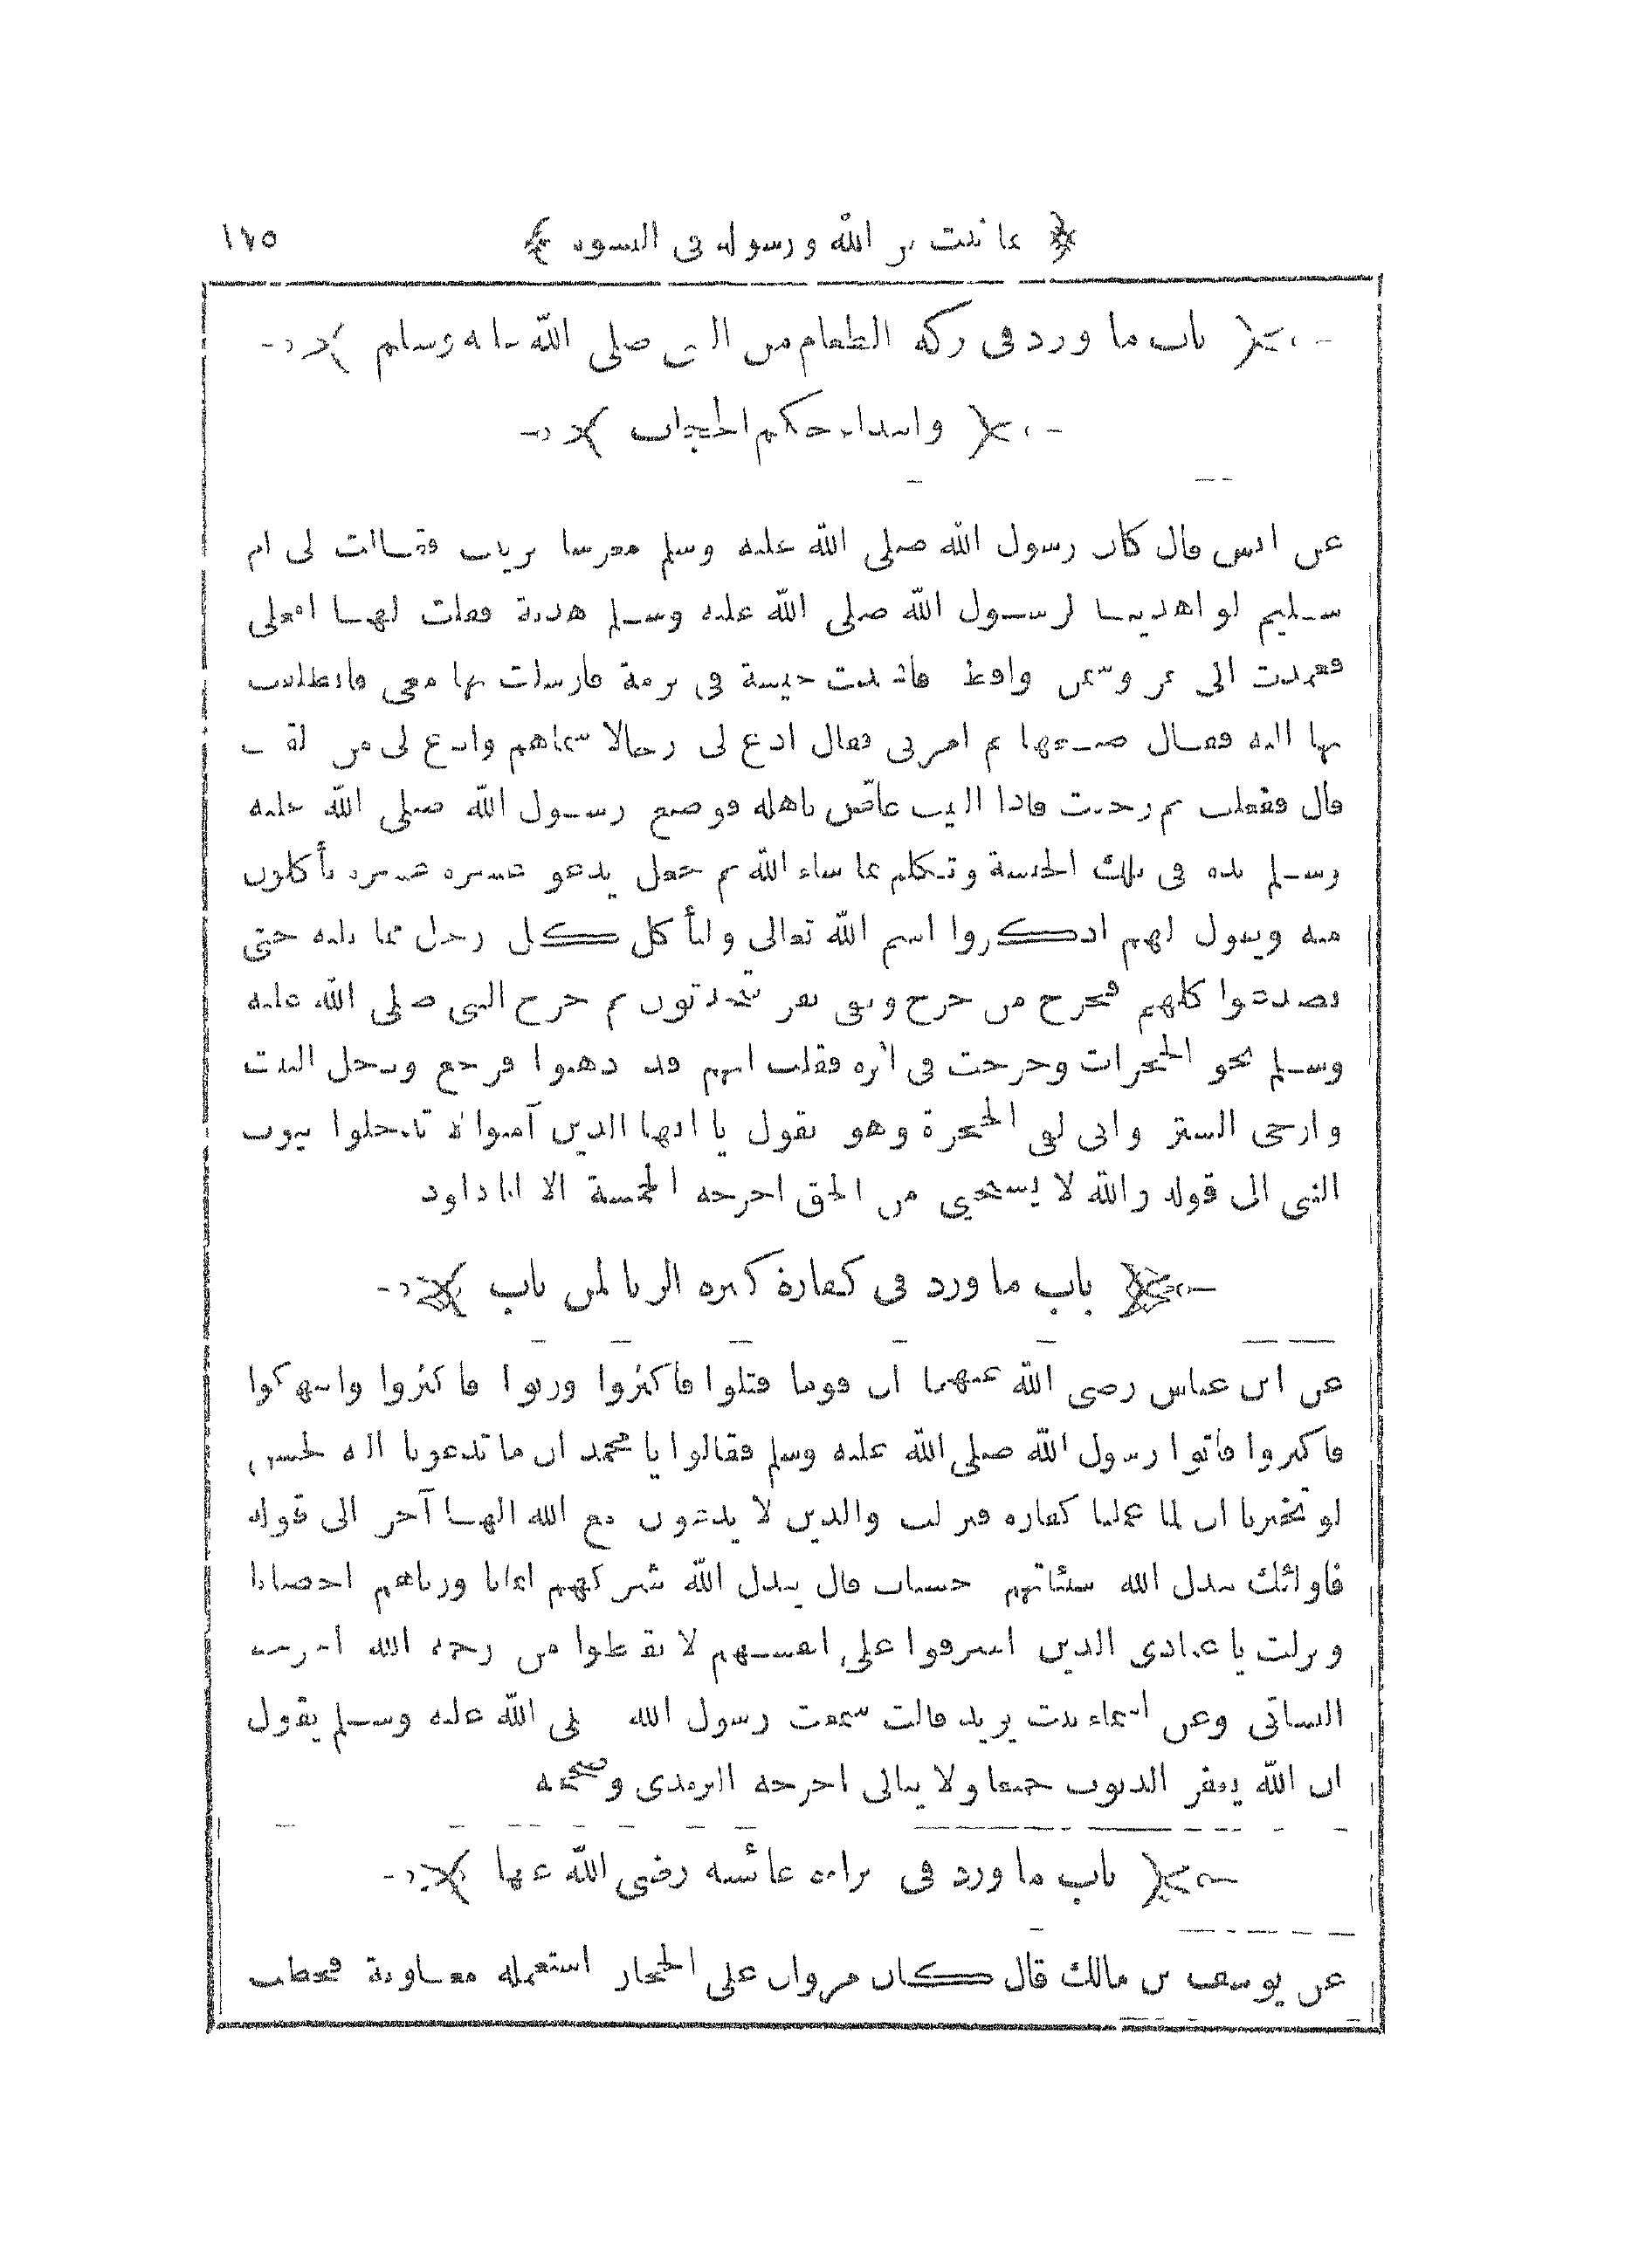 ﴿ بما ثبت من الله ورسوله في النسوة ﴾ ١٧٥
باب ما ورد في بركة الطعام من النبي صلى الله عليه وسلم
وابتداء حكم الحجاب
عن انس قال كان رسول الله صلى الله عليه وسلم معرسا بزينب فقالت لي ام
سليم لو اهدينا لرسول الله صلى الله عليه وسلم هدية فقلت لها افعلي
فعمدت الى تمر وسمن واقط فاتخذت حيسة في برمة فارسلت بها معي فانطلقت
بها اليه فقال ضعها ثم امرني فقال ادع لي رجالا سماهم وادع لي من لقيت
قال ففعلت ثم رجعت فاذا البيت غاص باهله فوضع رسول الله صلى الله عليه
وسلم يده في تلك الحيسة وتكلم بما شاء الله ثم جعل يدعو عشرة عشرة يأكلون
منه ويقول لهم اذكروا اسم الله تعالى وليأكل كل رجل مما يليه حتى
تصدعوا كلهم فخرج من خرج وبقي نفر يتحدثون ثم خرج النبي صلى الله عليه
وسلم نحو الحجرات وخرجت في اثره فقلت انهم قد ذهبوا فرجع ودخل البيت
وارخى الستر واني لفي الحجرة وهو يقول يا ايها الذين آمنوا لا تدخلوا بيوت
النبي الى قوله والله لا يستحيي من الحق اخرجه الخمسة الا ابا داود
باب ما ورد في كفارة كبيرة الزنا لمن تاب
عن ابن عباس رضي الله عنهما ان قوما قتلوا فاكثروا وزنوا فاكثروا وانتهكوا
فاكثروا فاتوا رسول الله صلى الله عليه وسلم فقالوا يا محمد ان ما تدعونا اليه لحسن
لو تخبرنا ان لما عملنا كفارة فنزلت والذين لا يدعون مع الله الها آخر الى قوله
فاولئك يبدل الله سيئاتهم حسنات قال يبدل الله شركهم ايمانا وزناهم احصانا
ونزلت يا عبادي الذين اسرفوا على انفسهم لا تقنطوا من رحمة الله اخرجه
النسائي وعن اسماء بنت يزيد قالت سمعت رسول الله صلى الله عليه وسلم يقول
ان الله يغفر الذنوب جميعا ولا يبالي اخرجه الترمذي وصححه
باب ما ورد في براءة عائشة رضي الله عنها
عن يوسف بن مالك قال كان مروان على الحجاز استعمله معاوية فخطب